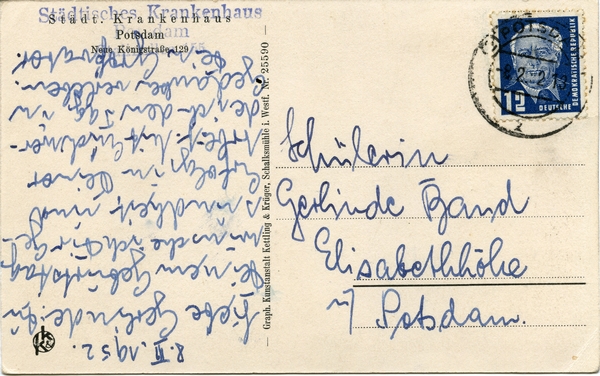 Städtisches Krankenhaus
Potsdam
Städt. Krankenhaus
Potsdam
Neue Königstraße 129
8. II. 1952.
Liebe Gerlinde! Zu
Deinem Geburtstag
wünsche ich Dir Ge-
sundheit und
Erfolg in Deiner
Arbeit. Mit wer-
de ich den Tag in
Gedanken verleben.
Dein Großvater.
Graph. Kunstanstalt Kettling & Krüger, Schalksmühle i. Westf. Nr. 25590
POTSDAM
12
DEUTSCHE
DEMOKRATISCHE REPUBLIK
Schülerin
Gerlinde Band
Elisabethhöhe
ü/ Potsdam.